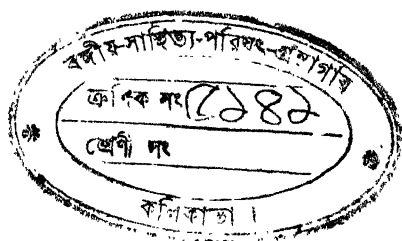 বঙ্গীয়-সাহিত্য-পরিষৎ-গ্রন্থাগার
ক্রমিক নং ৫১৪১
শ্রেণী নং
কলিকাতা।